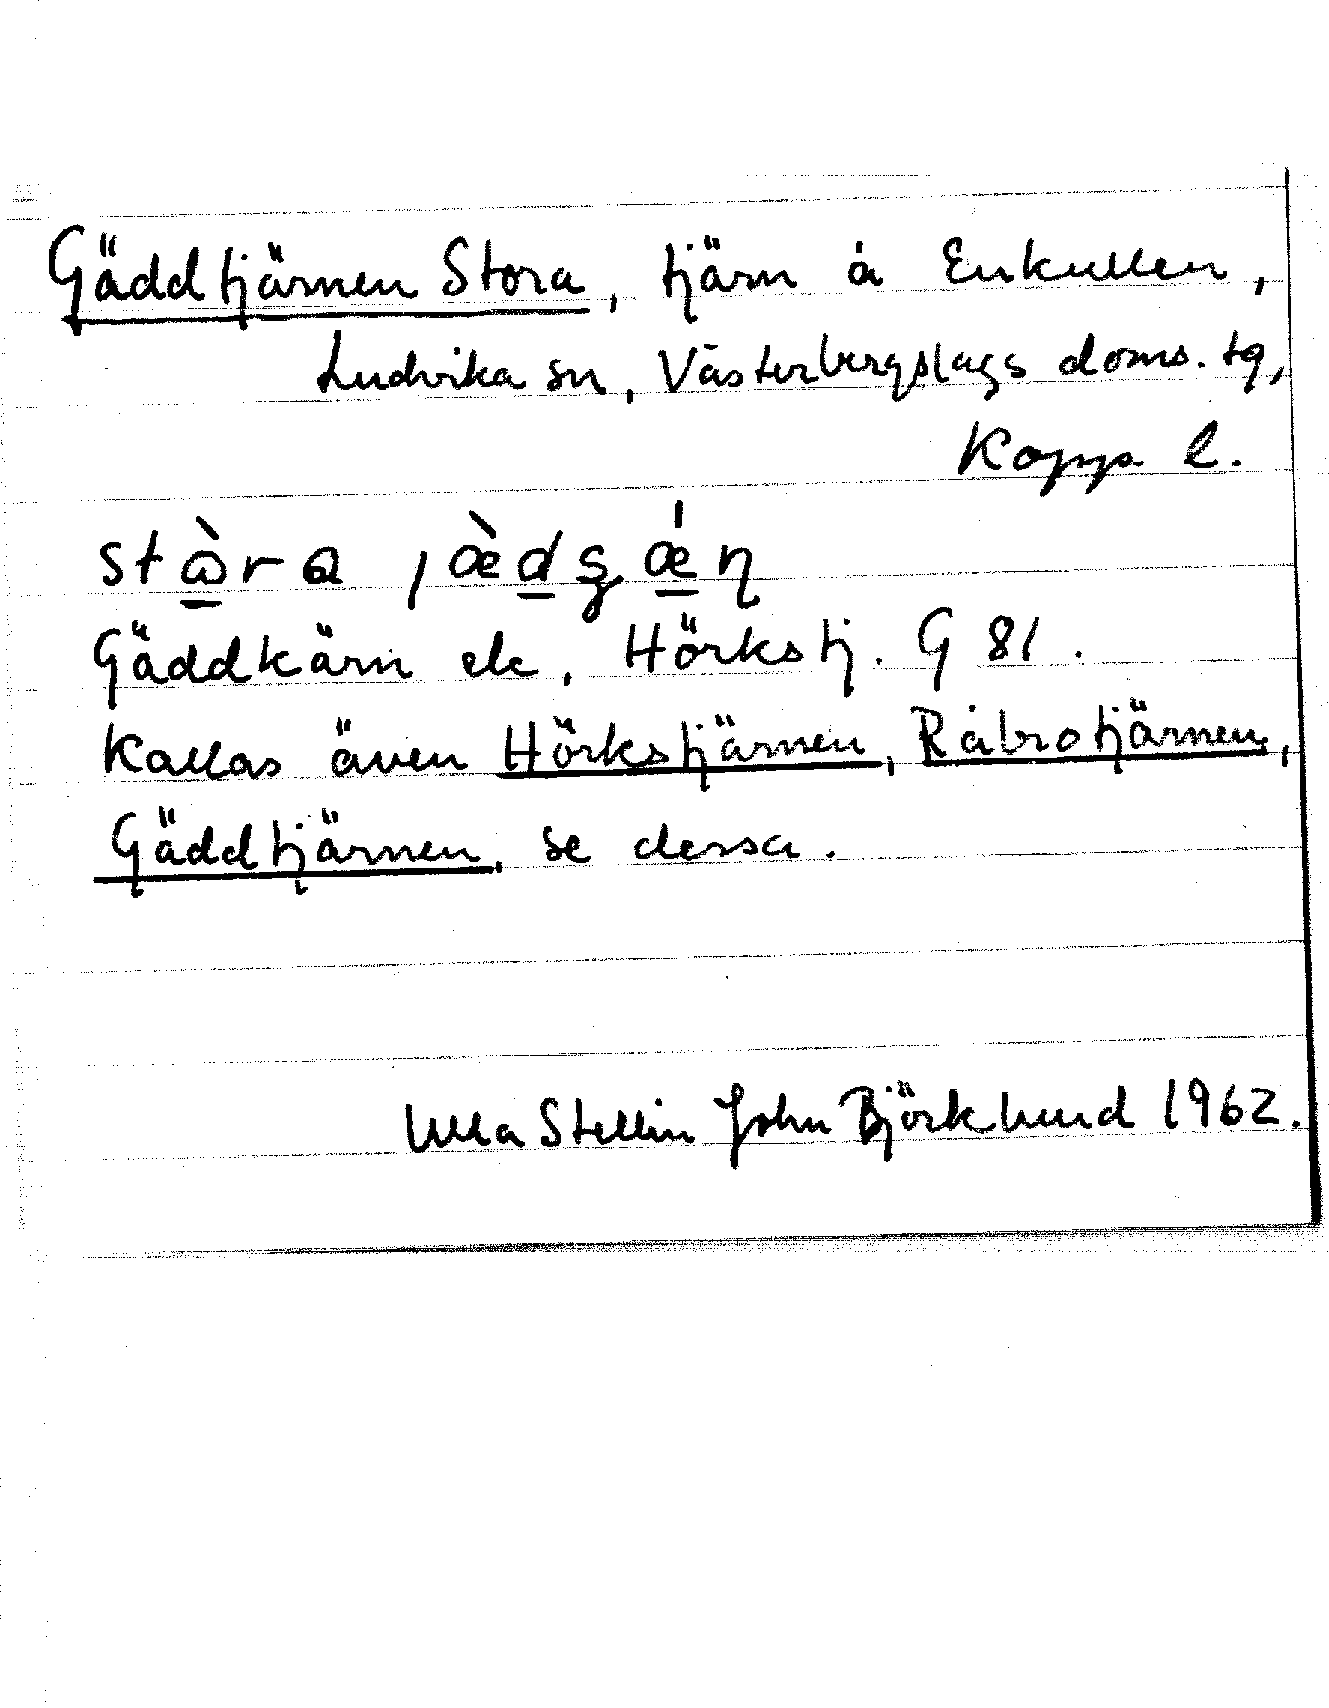 Gäddtjärnen Stora, tjärn å Enkullen,
Ludvika sn, Västerbergslags doms. tg,
Kopps l.
Gäddkärn ek, Hörkstj. G 81.
Kallas även Hörkstjärnen, Råbrotjärnen,
Gäddtjärnen, se dessa.
Ulla Stellin John Björklund 1962.